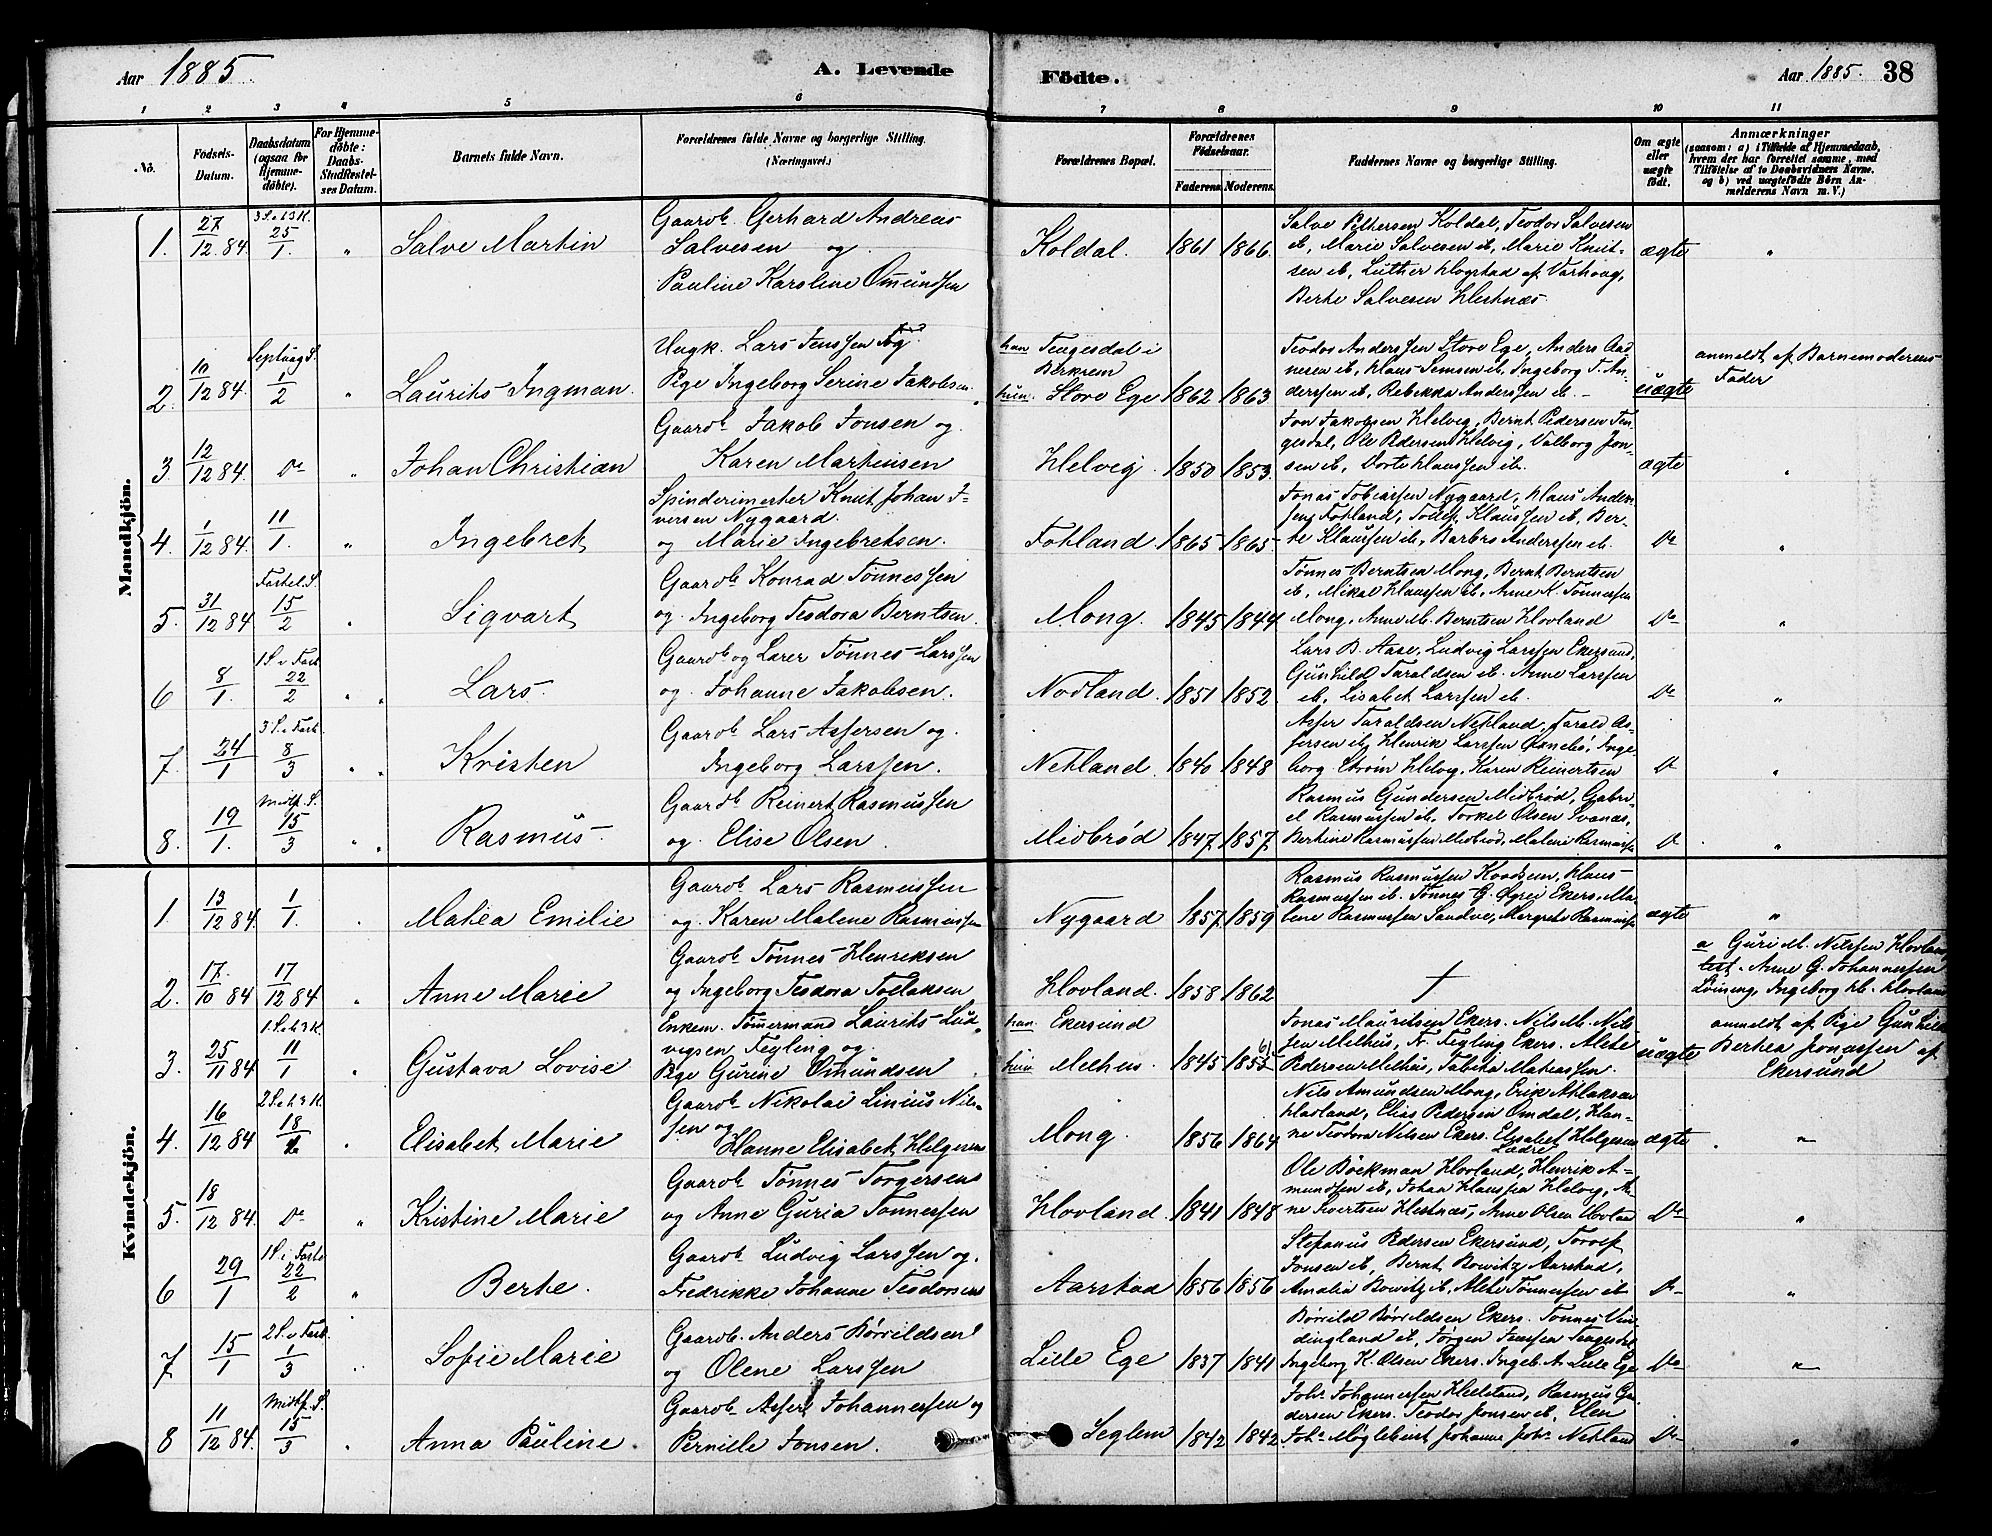 Aar 1885.
A. Levende
Födte.
Aar 1885.
38
1 2 3 4 5 6 7 8 9 10 11
No.
Födsels-Datum.
Daabsdatum (ogsaa for Hjemmedøbte).
For Hjemmedøbte: Daabs-Stadfæstelses Datum.
Barnets fulde Navn.
Forældrenes fulde Navne og borgerlige Stilling. (Næringsvei.)
Forældrenes Bopæl.
Forældrenes Födselsaar.
Faderens. Moderens.
Faddernes Navne og borgerlige Stilling.
Om ægte eller uægte födt.
Anmærkninger
(saasom: a) i Tilfælde af Hjemmedaab,
hvem der har forrettet samme, med
Tilföielse af to Daabsvidners Navne,
og b) ved uægtefödte Börn An-
melderens Navn m. V.)
Mandkjön.
3 S. e. h. 3 K.
1. 27/12 84 25/1. " Salve Martin
Gaardb. Gerhard Andreas
Salvesen og
Pauline Karoline Omundsen
Koldal. 1861 1866.
Salve Pettersen Koldal, Teodor Salvesen
ib, Marie Salvesen ib, Marie Knut-
sen ib, Luther Hogstad af Varhoug,
Berte Salvesen Hestnæs.
ægte "
Septuag S.
2. 10/12 84. 1/2 " Laurits Ingman.
Ungk. Lars Jenssen og
Pige Ingeborg Serine Jakobsen.
han Tengesdal i
Berkrem
hun Store Ege 1862 1863
Teodor Anderssen Store Ege, Anders Aad-
nesen ib, Klaus Semsen ib, Ingeborg T. An-
derssen ib, Rebekka Anderssen ib. -
uægte
anmeldt af Barnemoderens
Fader
3. 12/12 84. Do " Johan Christian
Gaardb. Jakob Jonsen og
Karen Martinsen
Helvig. 1850 1853.
Jon Jakobsen Helvig, Bernt Pedersen Ten-
gesdal, Ole Pedersen Helvig, Valborg Jon-
sen ib, Dorte Klaussen ib.
ægte "
4. 1/12 84. 11/1. " Ingebret
Spinderimester Knut Johan I-
versen Nygaard.
og Marie Ingebretsen.
Fotland 1865 1865.
Jonas Tobiassen Nygaard, Klaus Anders-
sen Fotland, Todef Klaussen ib, Ber-
te Klaussen ib, Barbro Anderssen ib.
Do "
Fastel. S.
5. 31/12 84 15/2 " Sigvart
Gaardb. Konrad Tönnessen
og Ingeborg Teodora Berntsen.
Mong. 1845 1844
Tönnes Berntsen Mong, Bernt Berntsen
ib, Mikal Klaussen ib, Anne K. Tönnessen
Mong, Anne M. Berntsen Hovland
Do "
1 S. i Fast.
6 8/1. 22/2 " Lars.
Gaardb. og Lærer Tönnes Larssen
og Johanne Jakobsen.
Nodland. 1851 1852.
Lars B. Aase, Ludvig Larssen Ekersund,
Gunhild Taraldsen ib. Anne Larssen
ib, Lisabet Larssen ib.
Do "
3 S. i Fast.
7. 24/1 8/3 " Kristen
Gaardb. Lars Assersen og
Ingeborg Larssen.
Netland. 1840 1848
Asser Taraldsen Netland, Tarald As-
sersen ib, Henrik Larssen, Inge-
borg Ström Helvig, Karen Reinertsen
Do "
Midf. S.
8. 19/1. 15/3 " Rasmus
Gaardb. Reinert Rasmussen
og Elise Olsen.
Midbrød 1847. 1857.
Rasmus Gundersen Midbrød, Gabri-
el Rasmussen ib. Torkel Olsen Svanæs,
Bertine Rasmussen Midbrød, Malene Rasmussen
Do "
Kvindekjön.
1 13/12 84. 1/1. Matea Emilie
Gaardb. Lars Rasmussen
og Karen Malene Rasmussen
Nygaard 1857. 1859
Rasmus Rasmussen, Klaus
Rasmussen ib. Tönnes G. Ekers. Ma-
lene Rasmussen Sandve, Margrete Rasmussen
ægte "
2. 17/10 84 17/12 84 " Anne Marie
Gaardb. Tönnes Henriksen
og Ingeborg Teodora Tollaksen
Hovland. 1858 1862
†
a Guri M. Nilssen Hovland
test. Anne G. Johannessen
Ingeborg M. Hovland
1. S. e. h. 3 K.
3. 25/11 84 11/1 " Gustava Lovise
Enkem. Tömermand Laurits Lud-
vigsen Feyling og
Pige Gurine Omundsen
han. Ekersund
hun Melhus. 1845 1855
Jonas Mauritsen Ekers. Nils M. Nils-
sen Melhus, N. Fegling Ekers. Alete
Pedersen Melhus, Tabita Matiassen.
uægte
anmeldt af Pige Gunhild
Bertea Jonassen af
Ekersund
2 S. e. h. 3 K.
4. 16/12 84 18/1 " Elisabet Marie
Gaardb. Nikolai Linius Nils-
sen og
Hanne Elisabet Helgesen
Mong. 1856 1864
Nils Amundsen Mong, Erik Atlaksen
Hovland, Elias Pedersen Omdal, Han-
ne Teodora Nilsen Ekers. Elisabet Helgesen
Lædre
ægte "
5. 18/12 84. Do " Kristine Marie
Gaardb. Tönnes Torgersen
og Anne Guria Tönnessen
Hovland. 1841 1848
Ole Böckman Hovland, Henrik A-
mundsen ib, Johan Klaussen Helvig, A-
ne Sivertsen Hestnæs, Anne Olsen Hovland
Do "
1 S. i Faste
6 29/1 22/2 " Berte.
Gaardb. Ludvig Larssen og.
Fredrikke Johanne Teodorsen
Aarstad 1856 1856
Stefanus Pedersen Ekersund, Torolf
Jonsen ib, Bernt Bowitz Aarstad,
Amalia Bowitz ib, Alete Tönnessen ib
Do "
2 S. i Fast.
7 15/1 1/3 " Sofie Marie
Gaardb. Anders Børrildsen
og Olene Larssen
Lille Ege 1837 1841
Børrild Børrildsen Ekers. Tönnes Vin-
dingland ib, Jørgen Jenssen Tengesdal
Ingeborg K. Olsen Ekers. Ingeb. A. Lille Ege
Do "
Midf. S.
8 11/12 84. 15/3 " Anna Pauline.
Gaardb. Asser Johannessen og
Pernille Jonsen.
Seglem 1842 1842
Johs. Johannessen Helleland, Rasmus Gu-
dersen Ekers. Teodor Jonsen ib. Elen
Johs. Møglebust Johanne Johs. Netland
Do "